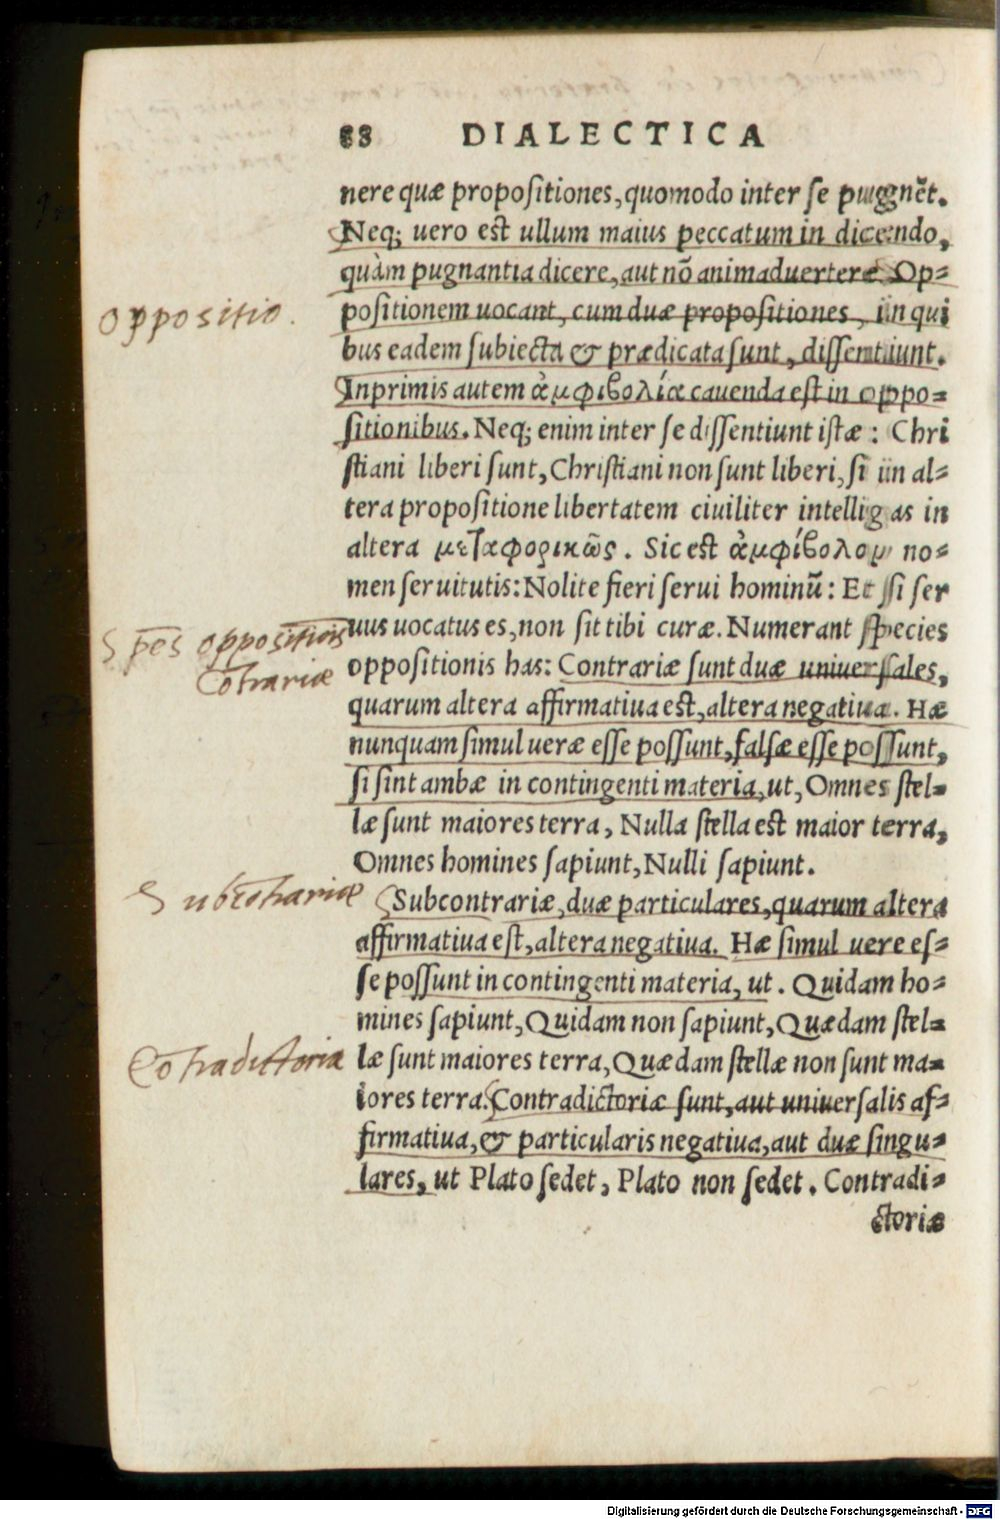 68 DIALECTICA
nere quæ propositiones, quomodo inter se pugnẽt.
Neq; uero est ullum maius peccatum in dicendo,
quàm pugnantia dicere, aut nõ animaduertere. Op=
positionem uocant, cum duæ propositiones, in qui
bus eadem subiecta & prædicata sunt, dissentiunt.
Inprimis autem ἀμφιβολία cauenda est in oppo=
sitionibus. Neq; enim inter se dissentiunt istæ: Chri
stiani liberi sunt, Christiani non sunt liberi, si in al=
tera propositione libertatem ciuiliter intelligas in
altera μεταφορικῶς. Sic est ἀμφίβολον no=
men seruitutis: Nolite fieri serui hominũ: Et si ser
uus uocatus es, non sit tibi curæ. Numerant species
oppositionis has: Contrariæ sunt duæ uniuersales,
quarum altera affirmatiua est, altera negatiua. Hæ
nunquam simul ueræ esse possunt, falsæ esse possunt,
si sint ambæ in contingenti materia, ut, Omnes stel=
læ sunt maiores terra, Nulla stella est maior terra,
Omnes homines sapiunt, Nulli sapiunt.
Subcontrariæ, duæ particulares, quarum altera
affirmatiua est, altera negatiua. Hæ simul uere es=
se possunt in contingenti materia, ut. Quidam ho=
mines sapiunt, Quidam non sapiunt, Quædam stel=
læ sunt maiores terra, Quædam stellæ non sunt ma=
iores terra. Contradictoriæ sunt, aut uniuersalis af=
firmatiua, & particularis negatiua, aut duæ singu=
lares, ut Plato sedet, Plato non sedet. Contradi=
ctoriæ
oppositio.
Sp̄es oppositionis
Cõtrariæ
Subcõtrariæ
Cõtradictoria
Digitalisierung gefördert durch die Deutsche Forschungsgemeinschaft - DFG